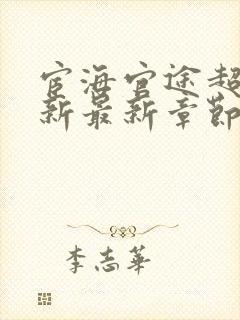 宦海官途超
新最新章節
李志華